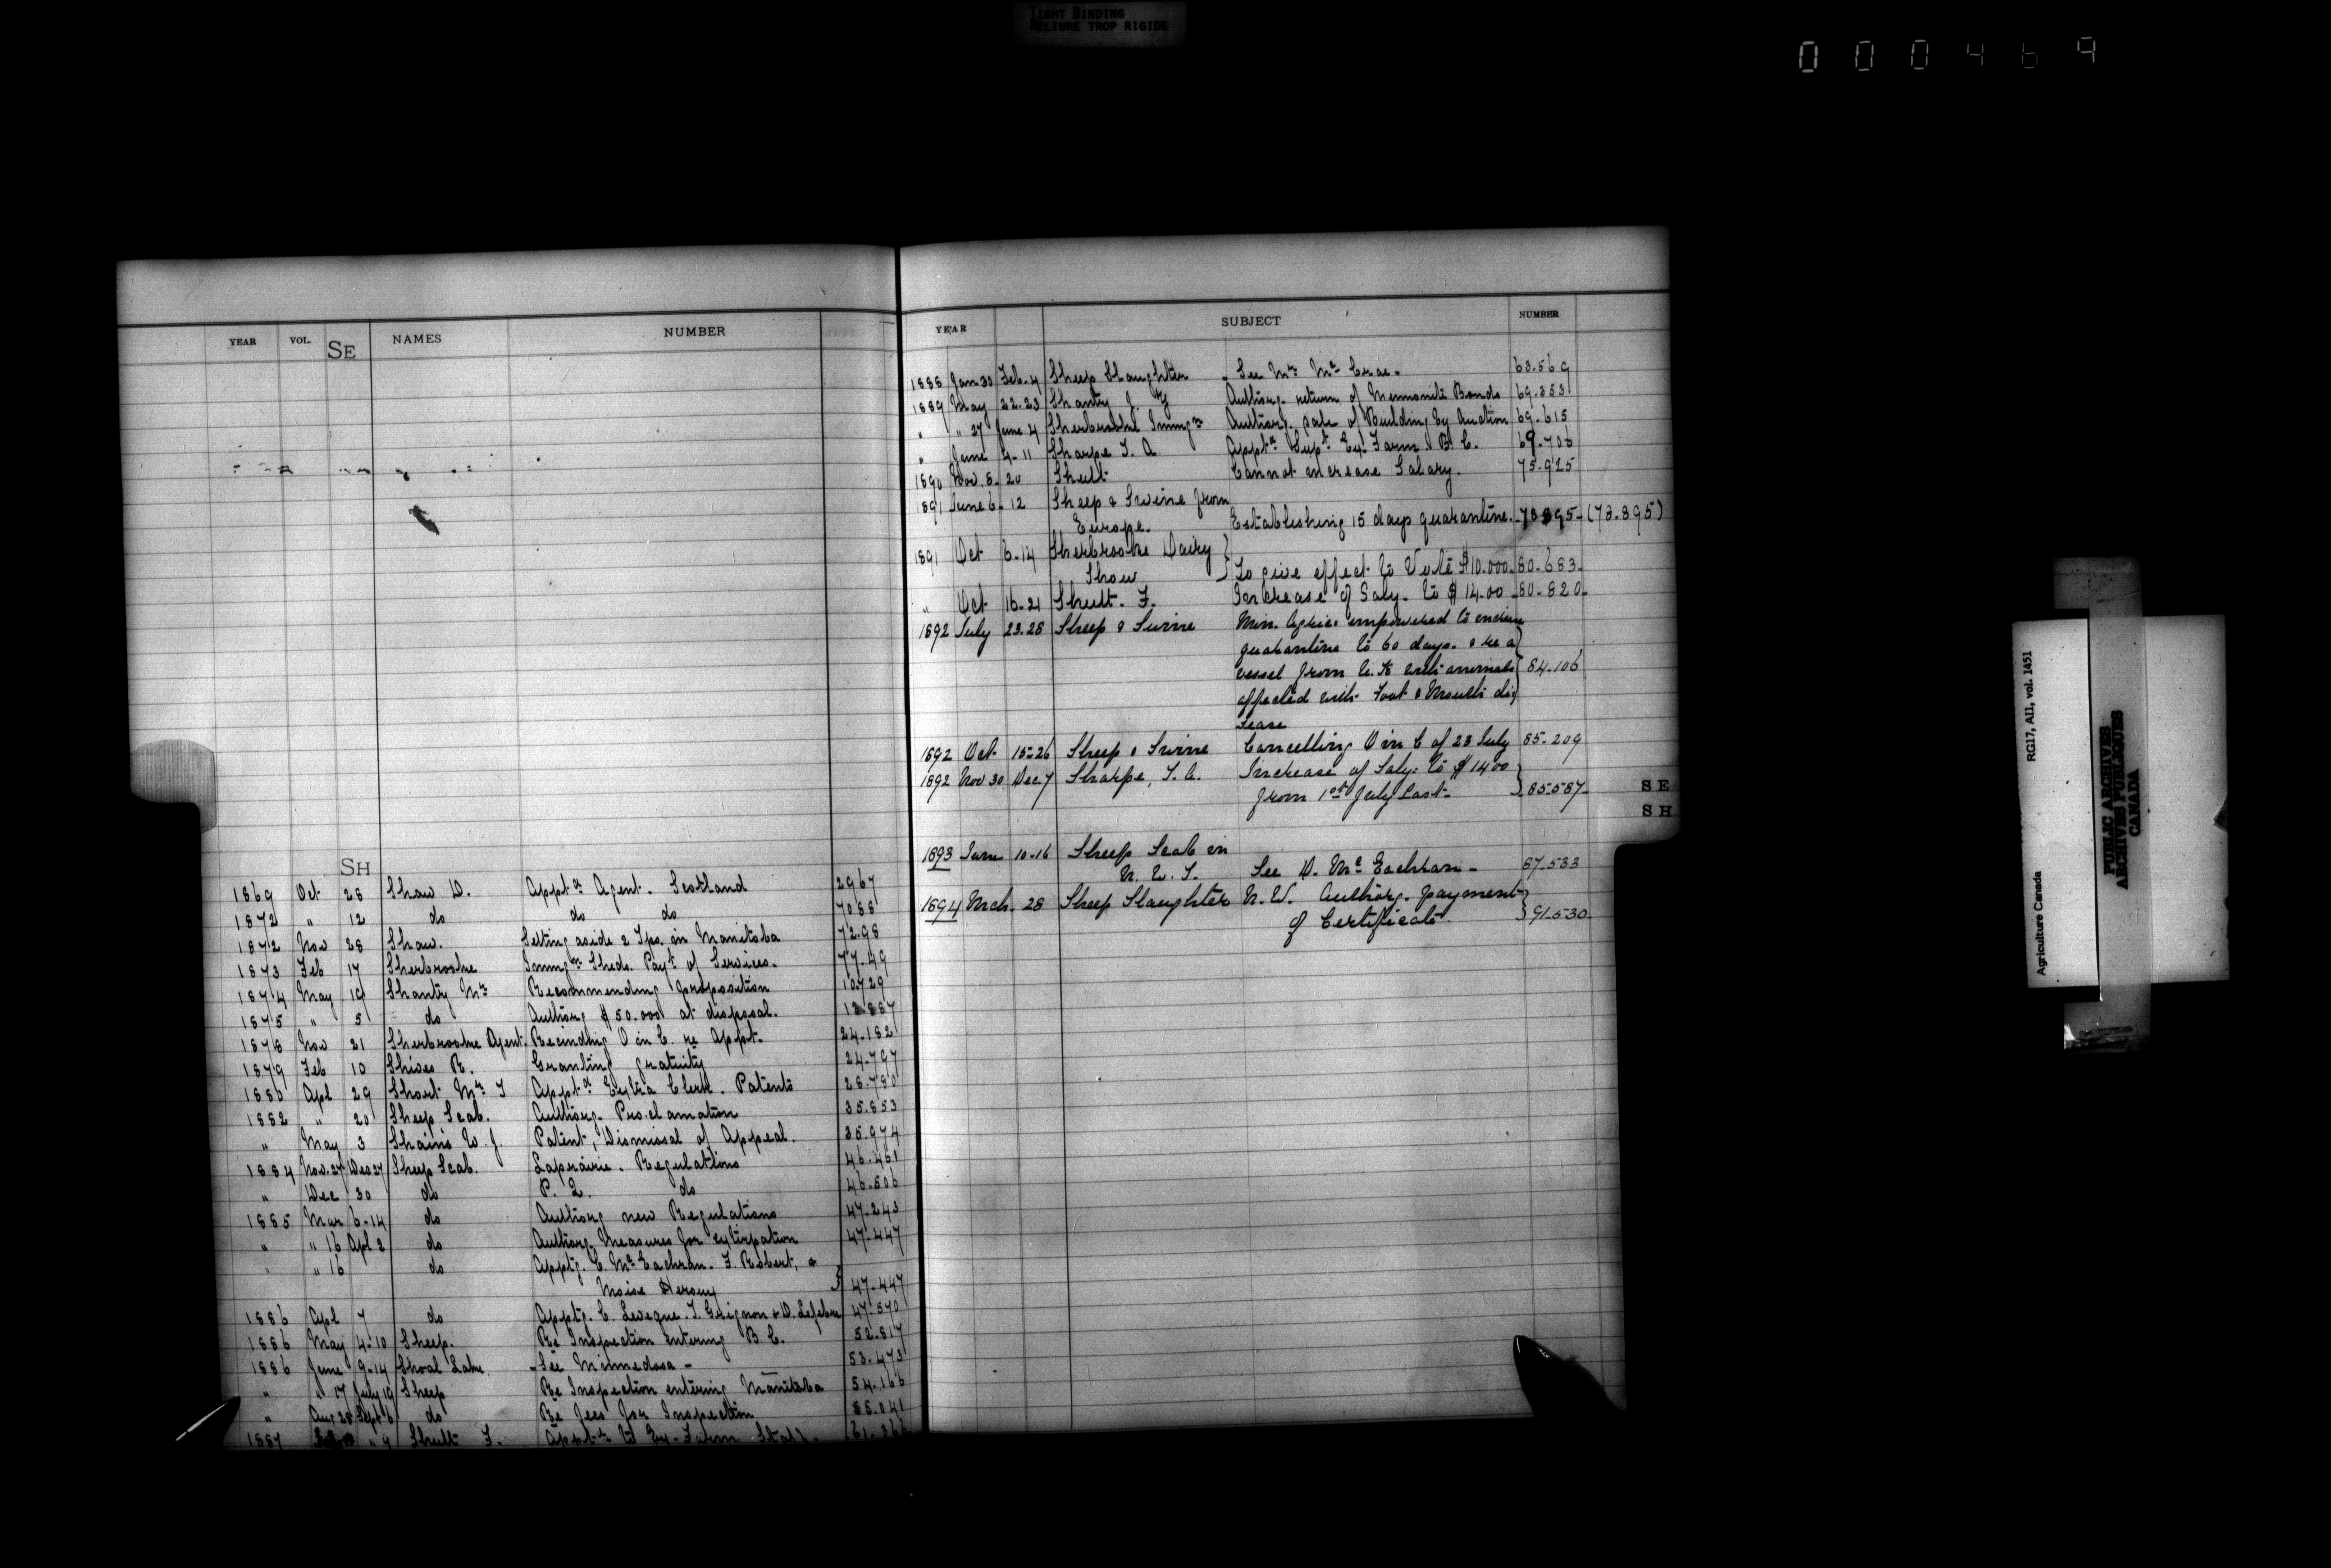 TIGHT BINDING
RELIURE TROP RIGIDE
000469
YEAR VOL. SE NAMES NUMBER
SH
1869 Oct 28 Shaw D. Appt. Agent. Scotland 2967
1872 " 12 do do do 7088
1872 Nov 28 Shaw. Setting aside 2 Tps. in Manitoba 72.98
1873 Feb 17 Sherbrooke Immgn Sheds. Payt of Services. 77.49
1874 May 19 Shantz Mr Recommending proposition 10729
1875 " 5 do Authorg $50.000 at disposal.
1878 Nov 21 Sherbrooke Agent. Recinding O in C. re Appt. 24.182
1879 Feb 10 Shives R. Granting gratuity 24.797
1880 Apl 29 Short Mr J Apptd Extra Clerk. Patents 28.780
1882 " 20 Sheep Scab. Authorg. Proclamation 35.853
" May 3 W. J. Patent, Dismissal of Appeal. 35.974
1884 Nov. 27 Dec 27 Sheep Scab. Laprairie. Regulations 46.461
" Dec 30 do P. Q. do 46.506
1885 Mar 6-14 do Authorg new Regulations 47.243
" " 16 Apl 2 do Authorg. Measures for extirpation 47.447
" " 16 do Apptg. C. McEachran. F. Robert, &
Moise 47.447
1886 Apl 7 do Apptg. C. Leveque. T. Grignon & D. Lefebvre 47.570
1886 May 4-10 Sheep. Re Inspection entering B. C. 52.817
1886 June 9-14 Shoal Lake - See Minnedosa - 53.473
" " 17 July 19 Sheep Re Inspection entering Manitoba 54.166
" Aug 28 Sept 6 do Re fees for Inspection 55.041
1887 " 9 Shutt F. Apptd to Ex. Farm Staff.
YEAR SUBJECT NUMBER
1888 Jan 30 Feb. 4 Sheep Slaughter - See Mr McCrae. 63.569
1889 May 22.23 Shantz J. Y Authorg. return of Mennonite Bonds 69.353
" " 27 June 4 Sherbrooke Immgn Authorg. sale of Building by Auction 69.615
" June 4-11 Sharpe T. A. Apptd Supt Ex. Farm B. C. 69.706
1890 Nov. 8. 20 Shutt Cannot increase Salary. 75.925
1891 June 6. 12 Sheep & Swine from
Europe. Establishing 15 days quarantine. 78895 (78.895)
1891 Oct 6-14 Sherbrooke Dairy
Show To give effect to Vote $10.000. 80.683.
" Oct 16-21 Shutt. F. Increase of Saly. to $1400 80.820.
1892 July 23.28 Sheep & Swine Min. Agric. empowered to
quarantine to 60 days. & re a
vessel from U.K with animals 84.106
affected with Foot & Mouth dis
ease
1892 Oct. 15-26 Sheep & Swine Cancelling O in C of 23 July 85.209
1892 Nov 30 Dec 7 Sharpe, T. A. Increase of Saly. to $1400
from 1st July last. 85.587.
SE
SH
1893 June 10-16 Sheep Scab in
N. W. T. See D. McEachran - 87.533
1894 Mch. 28 Sheep Slaughter N. W. Authorg. payment
of Certificate. 91.530.
Agriculture Canada RG17, AII, vol. 1451
PUBLIC ARCHIVES
ARCHIVES PUBLIQUES
CANADA